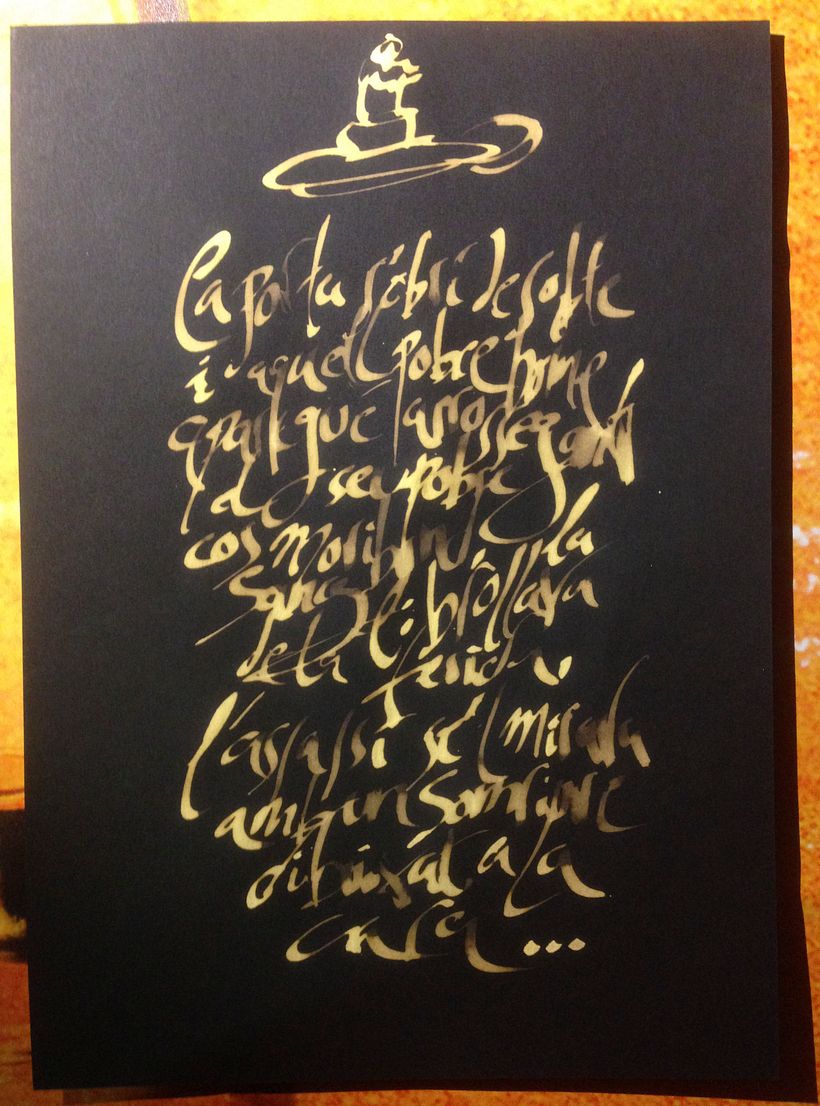 La porta s'obrí de sobte
i aquell pobre home
arrossegant
el seu pobre
cos moribund la
sang li brollava
de la ferida
l'assassí se'l mirava
amb un somriure
dibuixat a la
cara ...